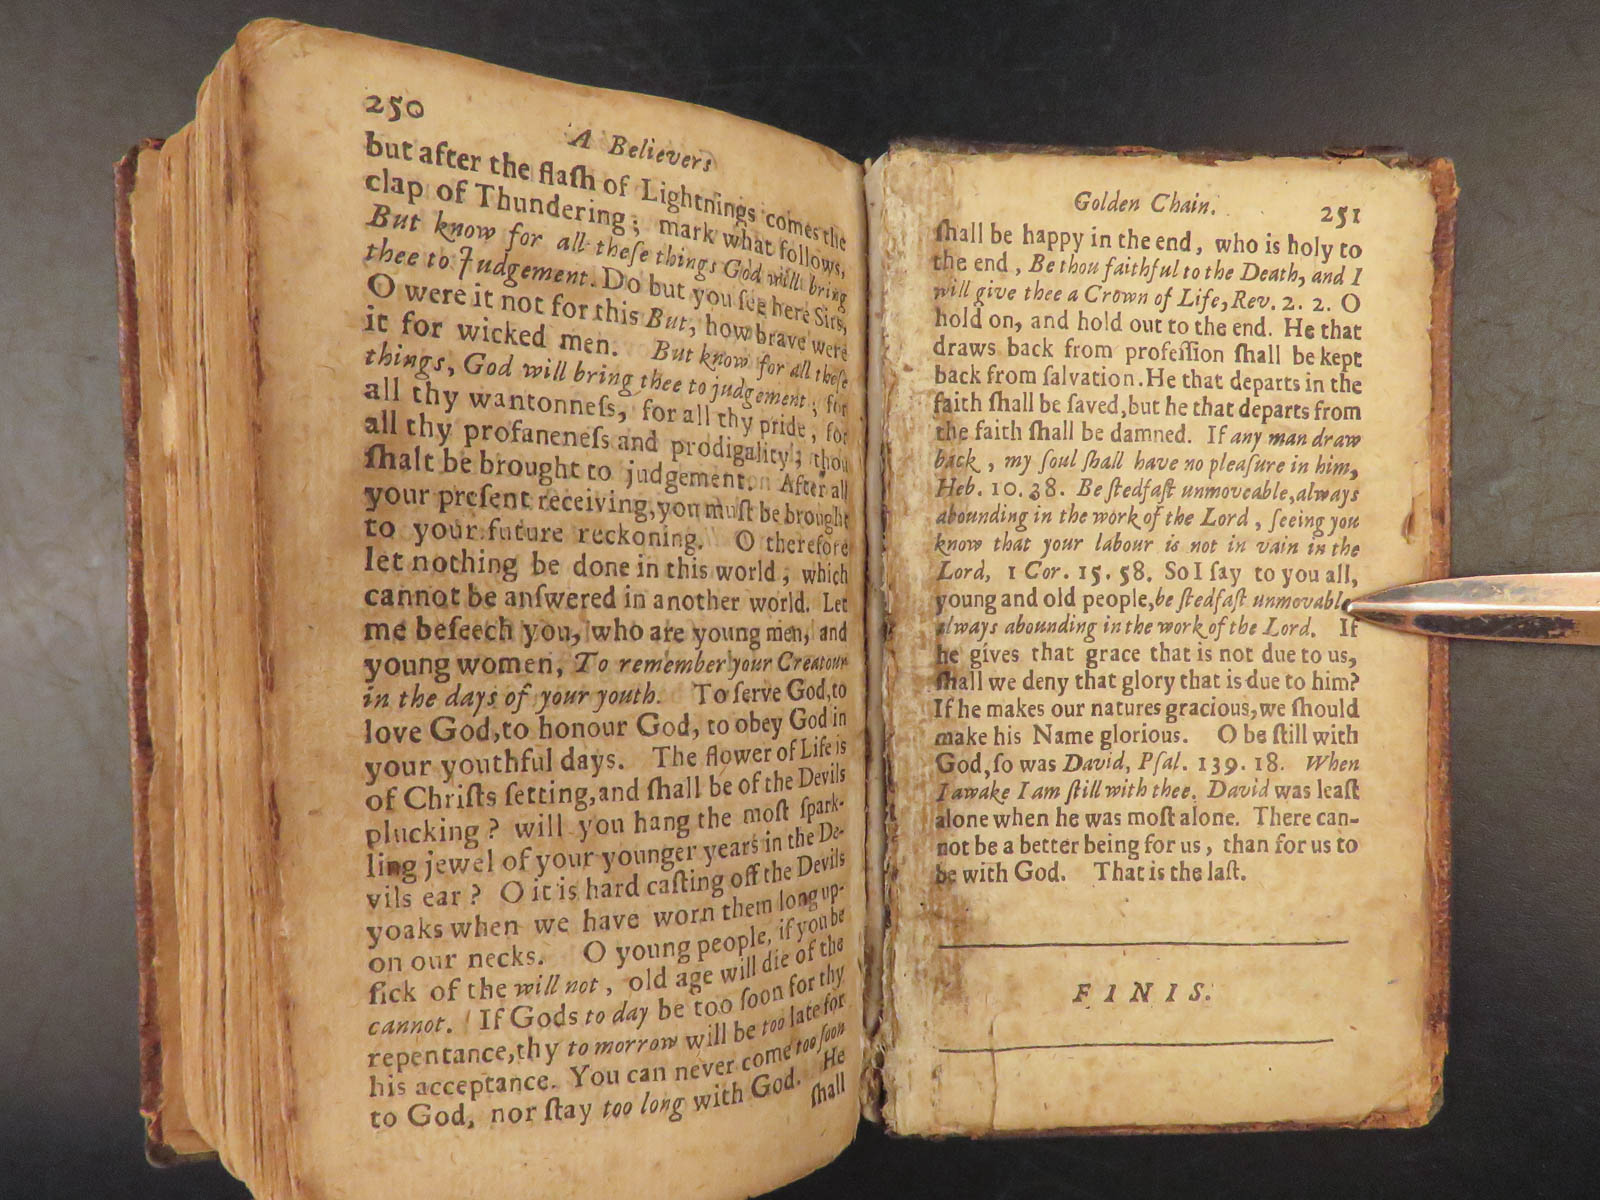 250
A Believers
but after the flaſh of Lightnings comes the
clap of Thundering; mark what follows,
But know for all theſe things God will bring
thee to Judgement. Do but you ſee here Sirs,
O were it not for this But, how brave were
it for wicked men. But know for all theſe
things, God will bring thee to judgement; for
all thy wantonneſs, for all thy pride, for
all thy profaneneſs and prodigality; thou
ſhalt be brought to judgement. After all
your preſent receiving, you muſt be brought
to your future reckoning. O therefore
let nothing be done in this world, which
cannot be anſwered in another world. Let
me beſeech you, who are young men, and
young women, To remember your Creatour
in the days of your youth. To ſerve God, to
love God, to honour God, to obey God in
your youthful days. The flower of Life is
of Chriſts ſetting, and ſhall be of the Devils
plucking? will you hang the moſt ſpark-
ling jewel of your younger years in the De-
vils ear? O it is hard caſting off the Devils
yoaks when we have worn them long up-
on our necks. O young people, if you be
ſick of the will not, old age will die of the
cannot. If Gods to day be too ſoon for thy
repentance, thy to morrow will be too late for
his acceptance. You can never come too ſoon
to God, nor ſtay too long with God. He
ſhall
Golden Chain.
251
ſhall be happy in the end, who is holy to
the end, Be thou faithful to the Death, and I
will give thee a Crown of Life, Rev. 2. 2. O
hold on, and hold out to the end. He that
draws back from profeſſion ſhall be kept
back from ſalvation. He that departs in the
faith ſhall be ſaved, but he that departs from
the faith ſhall be damned. If any man draw
back, my ſoul ſhall have no pleaſure in him,
Heb. 10. 38. Be ſtedfaſt unmoveable, always
abounding in the work of the Lord, ſeeing you
know that your labour is not in vain in the
Lord, 1 Cor. 15. 58. So I ſay to you all,
young and old people, be ſtedfaſt unmovable
always abounding in the work of the Lord. If
he gives that grace that is not due to us,
ſhall we deny that glory that is due to him?
If he makes our natures gracious, we ſhould
make his Name glorious. O be ſtill with
God, ſo was David, Pſal. 139. 18. When
I awake I am ſtill with thee. David was leaſt
alone when he was moſt alone. There can-
not be a better being for us, than for us to
be with God. That is the laſt.
FINIS.